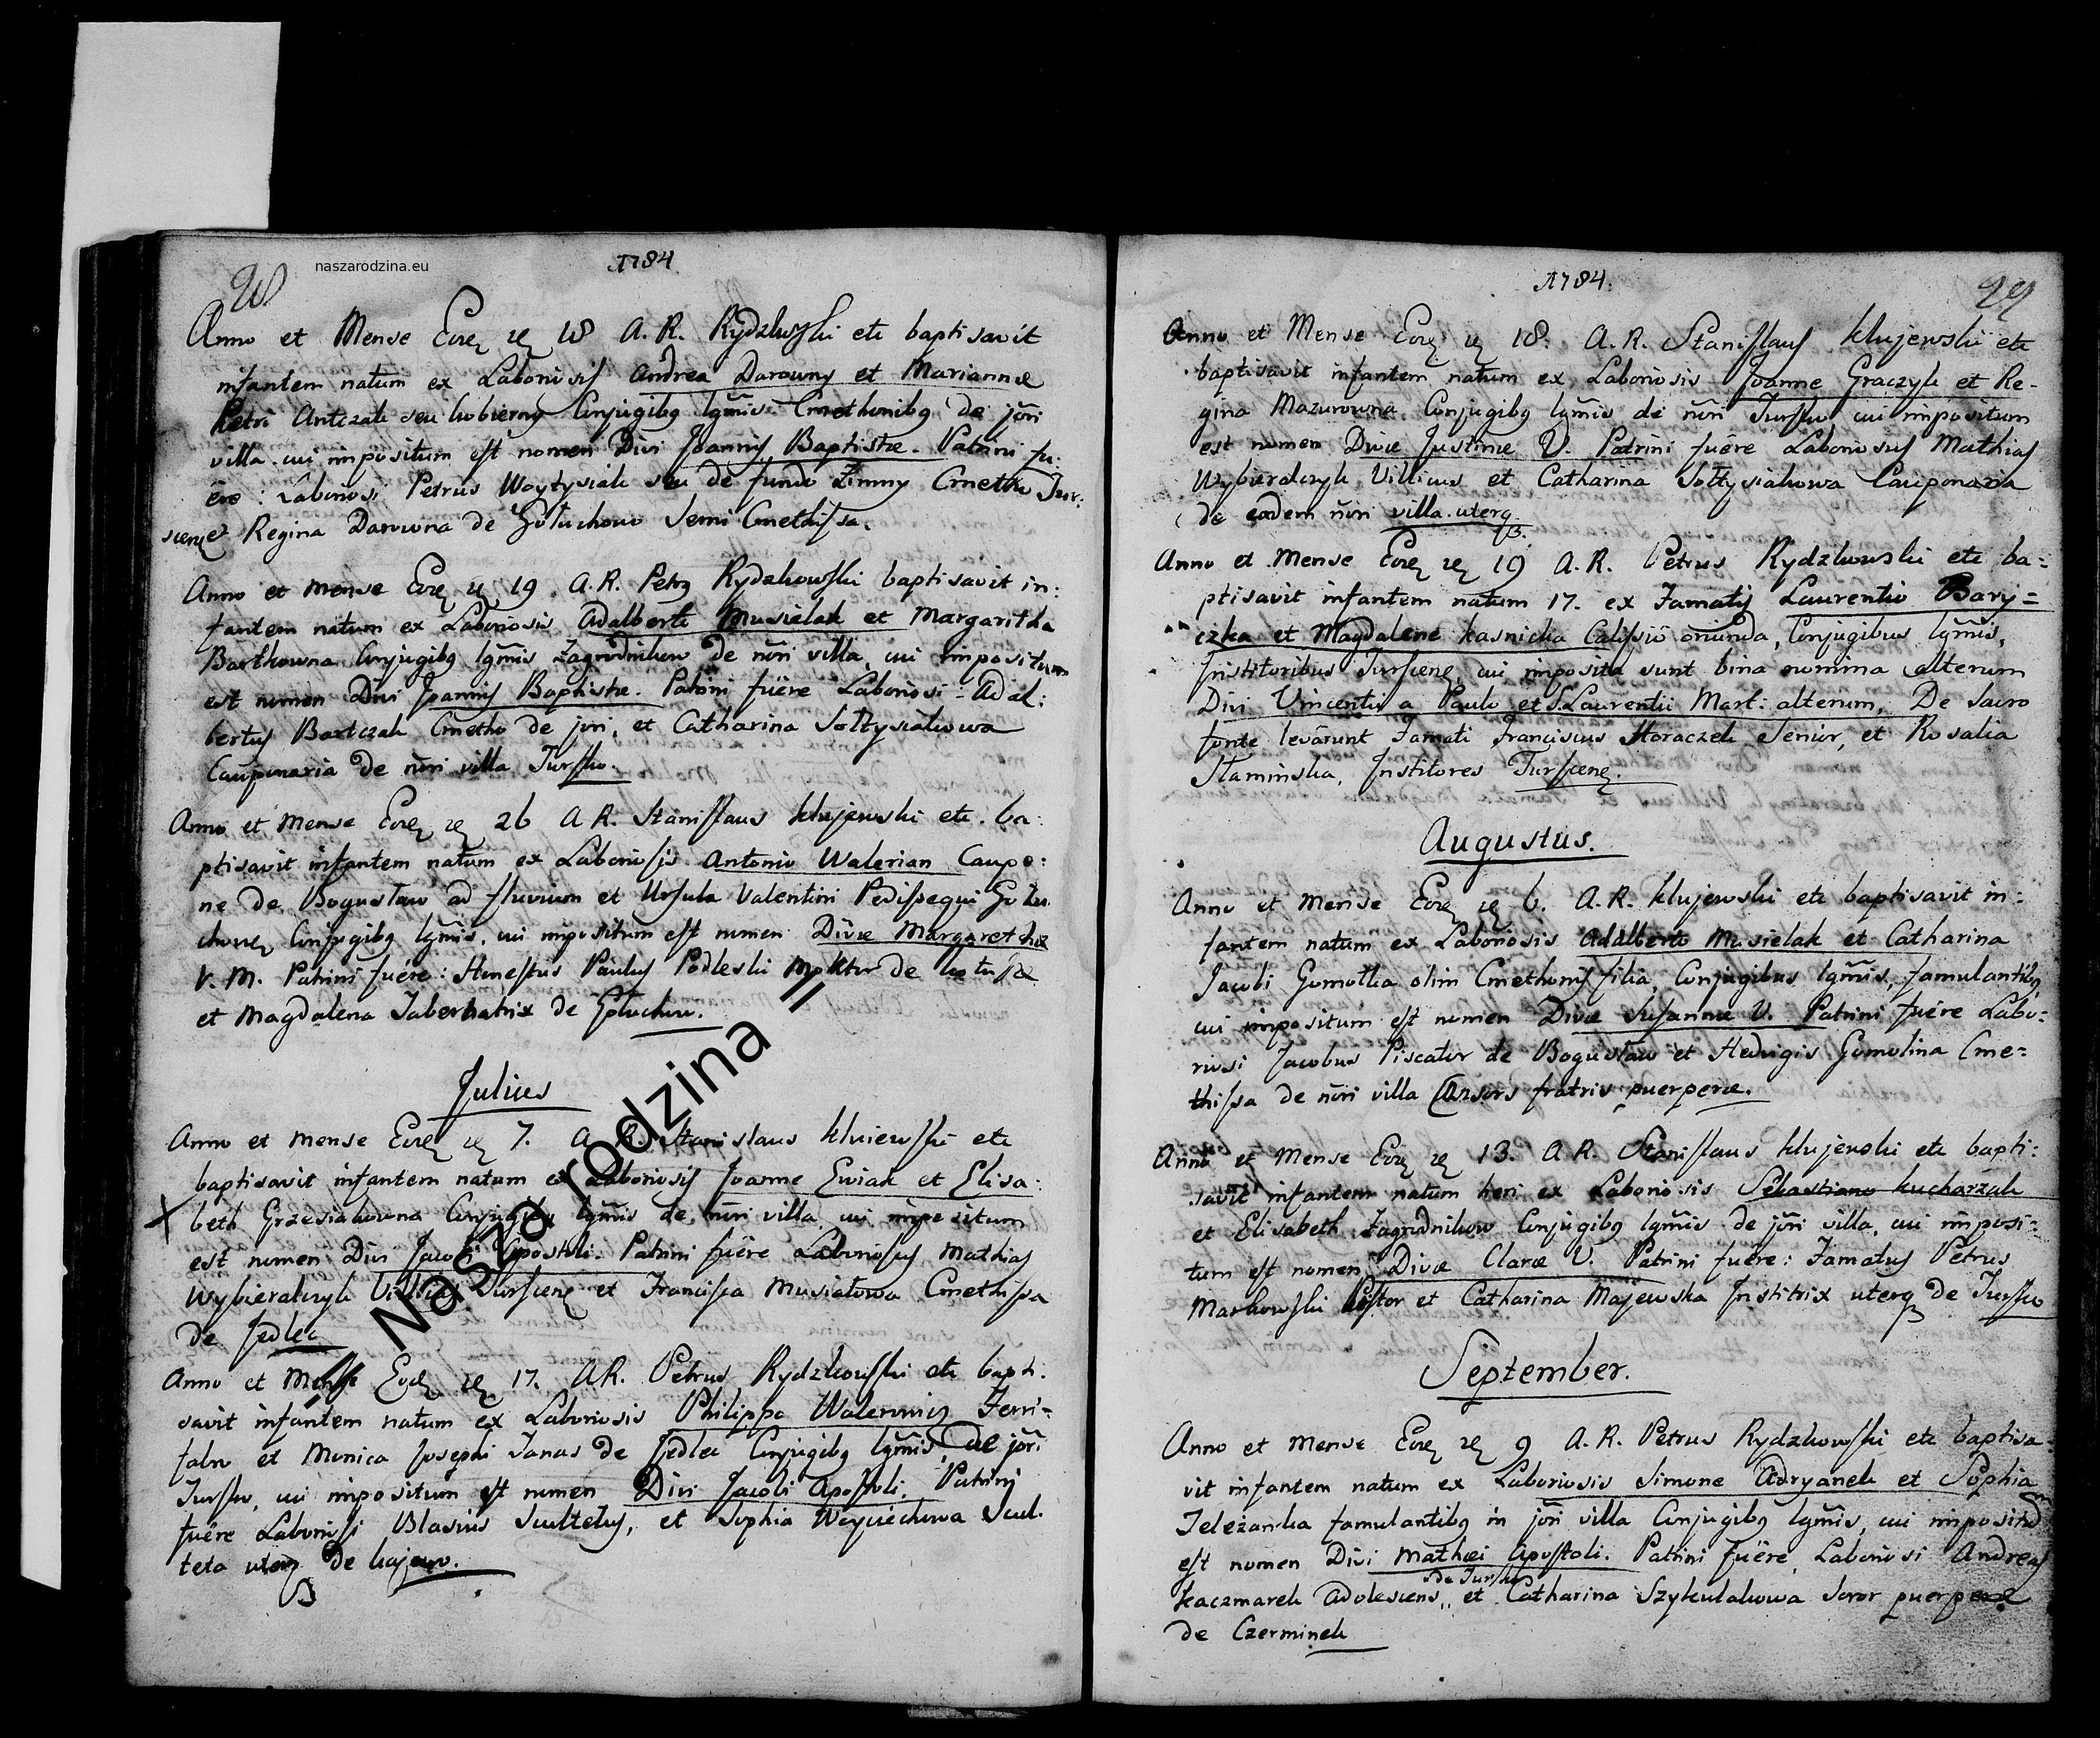 28
naszarodzina.eu
1784
Anno et Mense 18 A. R. Rydzkowski etc baptisavit
infantem natum ex Laboriosis Andrea Darowny et Marianna
Petri Antczak seu kobierny Conjugibg lgmis Cmethonibg de jõri
villa. cui impositum est nomen Divi Joannis Baptistæ. Patrini fu:
ère: Laboriosi Petrus Woytysiak seu de fundo Zimny Cmetho Tur:
sciene Regina Darowna de Gołuchowo Semi Cmethissa.
Anno et mense 19. A. R. Petrg Rydzkowski baptisavit in:
fantem natum ex Laboriosis Adalberto Musielak et Margaritha
Bartkowna Conjugibg lgmis Zagrodnikow de nõri villa, cui impositum
est nomen Divi Joannis Baptistæ. Patrini fuëre Laboriosi: Adal:
bertus Bartczak Cmetho de jori, et Catharina Sołtysiakowa
Cauponaria de nõri villa Tursko.
Anno et Mense 26 A R. Stanislaus klujewski etc. ba:
ptisavit infantem natum ex Laboriosis Antonio Walerian Caupo:
ne de Bogusław ad fluvium et Ursula Valentini Pedissequi Golu
chovien Conjugibg lgmis, cui impositum est nomen Divæ Margarethæ
V. M. Patrini fuére: Honestus Paulus Podleski Molitor de
et Magdalena Tabernatrix de Goluchow.
Julius
Anno et mense 7. A R. Stanislaus kluiewski etc
baptisavit infantem natum ex Laboriosis Joanne Ewiak et Elisa:
beth Grzesiakowna Conjugibg lgmis de nõri villa, cui impositum
est nomen Divi Jacobi Apostoli. Patrini fuére Laboriosus Mathias
Wybieralczyk Villicus Tursciene et Francisca Musiałowa Cmethissa
de Jedlec
Anno et Mense 17. A R. Petrus Rydzkowski etc bapti:
savit infantem natum ex Laboriosis Philippo Walerowicz Ferri=
fabro et Monica Josephi Janas de Jedlec Conjugibg lgmis, de jõri
Tursko, cui impositum est nomen Divi Jacobi Apostoli. Patrini
fuêre Laboriosi Blasius Scultetus, et Sophia Woyciechowa Scul.
teta uterq de kajewo.
// Nasza rodzina //
1784.
29
Anno et Mense 18. A. R. Stanislaus klujewski etc
baptisavit infantem natum ex Laboriosis Joanne Graczyk et Re-
gina Mazurowna Conjugibg lgmis de nõri Tursko cui impositum
est nomen Divæ Justinæ V. Patrini fuére Laboriosus Mathias
Wybieralczyk Villicus et Catharina Sołtysiakowa Cauponaria
de eadem nõri villa uterq.
Anno et Mense 19 A. R. Petrus Rydzkowski etc ba=
ptisavit infantem natum 17. ex Famatis Laurentio Bary=
czka et Magdalene kasnicka Calissiô oriunda, Conjugibus lgmis,
Institoribus Tursciene, cui imposita sunt bina nomina alterum
Divi Vincentii a Paulo et S Laurentii Mart: alterum. De Sacro
fonte levârunt Famati Franciscus Horaczek Senior, et Rosalia
Stamińska, Institores Tursciene.
Augustus.
Anno et Mense 6. A. R. klujewski etc baptisavit in:
fantem natum ex Laboriosis Adalberto Musielak et Catharina
Jacobi Gomolka olim Cmethonis filia, Conjugibus lgmis, famulantibg,
cui impositum est nomen Divæ Susannæ V. Patrini fuére Labo=
riosi Jacobus Piscator de Bogusław et Hedvigis Gomolina Cme=
thissa de nõri villa Consors fratris puerperæ.
Anno et Mense 13. A R. Stanislaus klujewski etc bapti:
savit infantem natum heri ex Laboriosis Sebastiano kucharzak
et Elisabeth Zagrodnikow Conjugibg lgmis de jõri villa, cui imposi=
tum est nomen Divæ Claræ V. Patrini fuére: Famatus Petrus
Markowski Pistor et Catharina Majewska Institrix uterq de Tursko
September.
Anno et mense 9 A. R. Petrus Rydzkowski etc baptisa
vit infantem natum ex Laboriosis Simone Adryanek et Sophia
Jeleżanka famulantibg in jõri villa Conjugibg lgmis, cui impositũ
est nomen Divi Mathæi Apostoli. Patrini fuére Laboriosi Andreas
de Tursko
kaczmarek Adolescens,, et Catharina Szykulakowa Soror puerperæ
de Czerminek